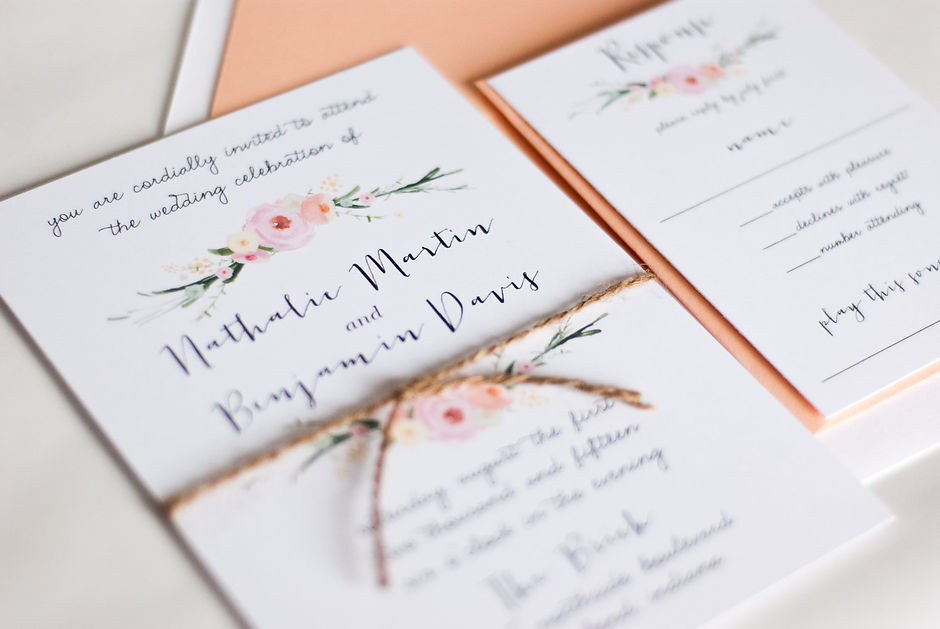 you are cordially invited to attend
the wedding celebration of
Nathalie Martin
and
Benjamin Davis
august the first
thousand and fifteen
in the evening
The
boulevard
indiana
Response
please reply by july
name
accepts with pleasure
declines with regret
number attending
play this song